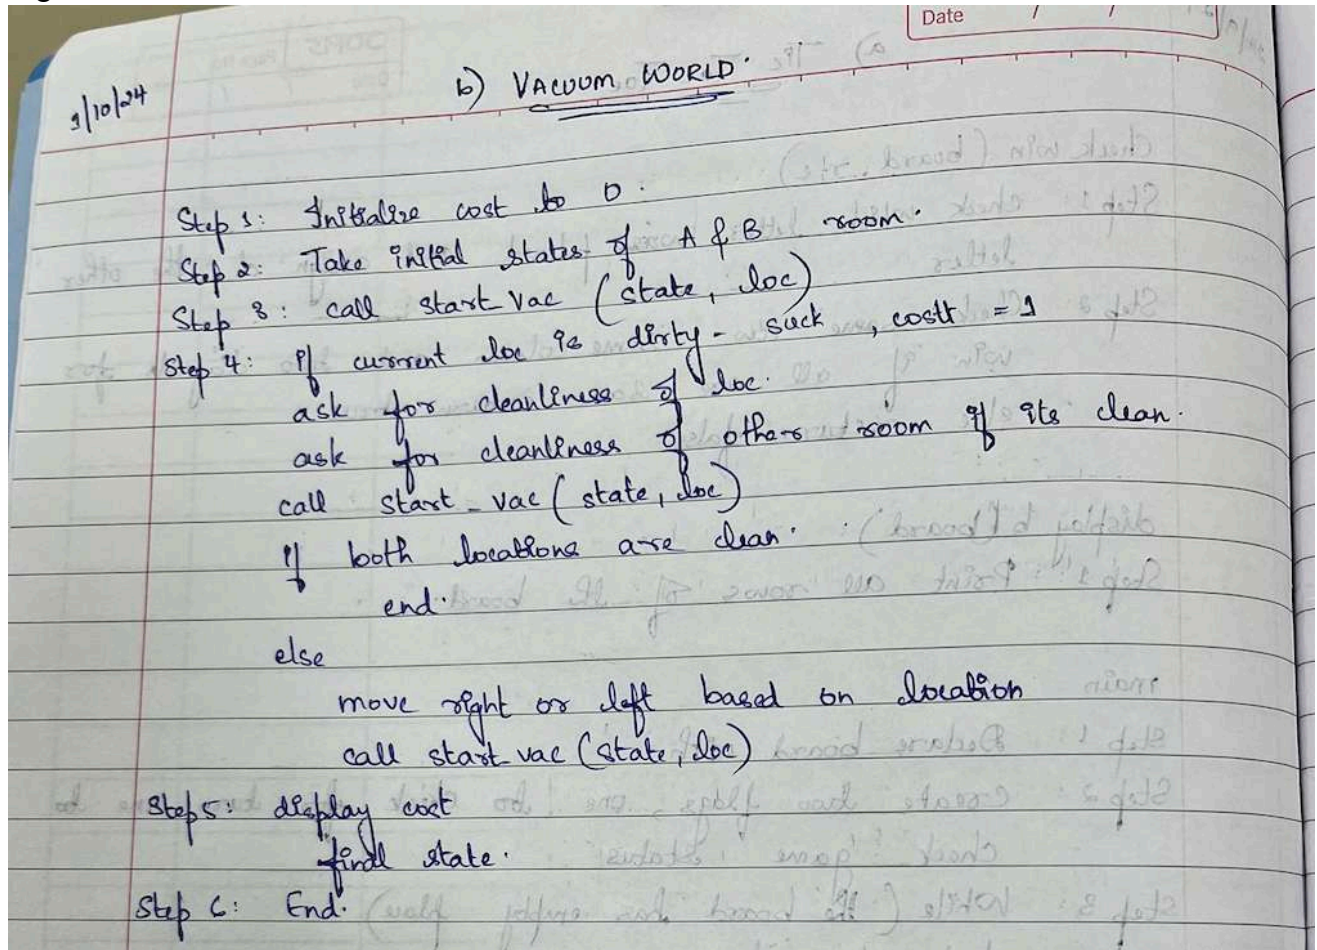 Date / /
1/10/24
b) VACUUM WORLD.
Step 1: Initialize cost to 0.
Step 2: Take initial states of A & B room.
Step 3: call start_vac (state, loc)
Step 4: if current loc is dirty - suck, cost+ = 1
ask for cleanliness of loc.
ask for cleanliness of other room if its clean.
call start_vac (state, loc)
if both locations are clean.
end.
else
move right or left based on location
call start_vac (state, loc)
Step 5: display cost
final state.
Step 6: End.